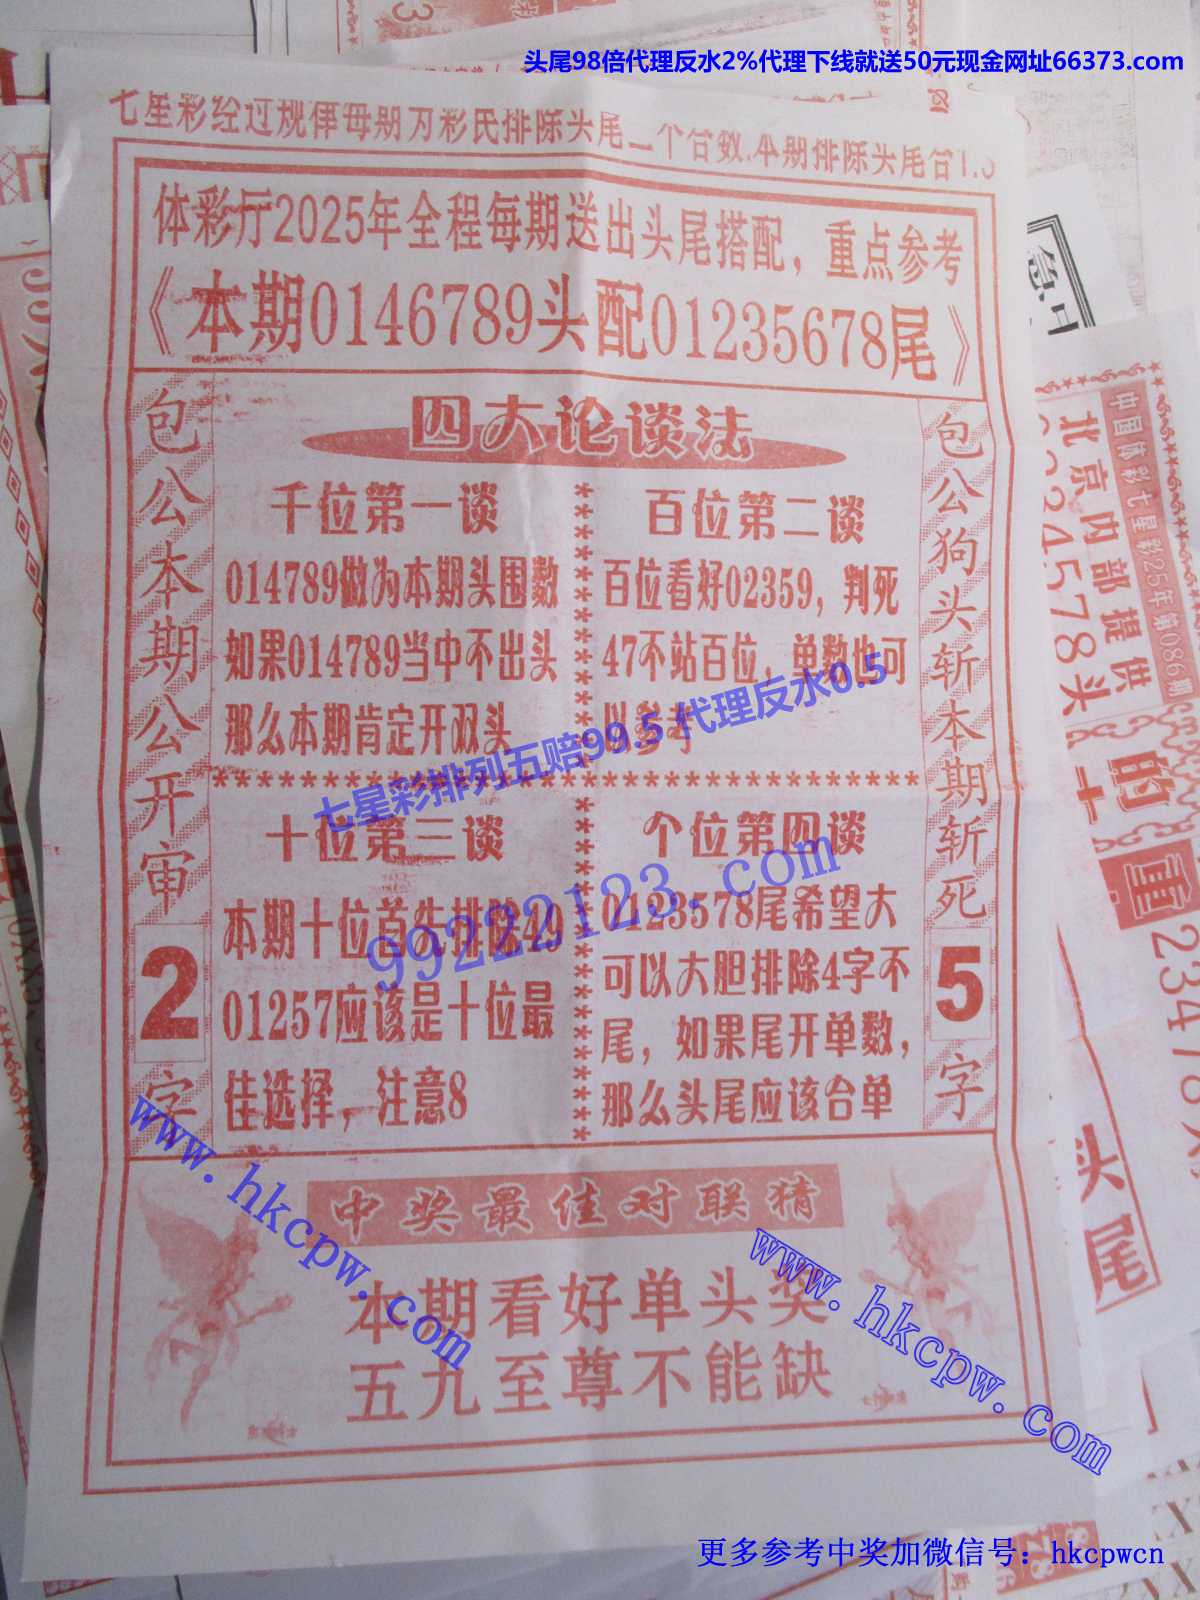 头尾98倍代理反水2%代理下线就送50元现金网址66373.com
七星彩经过规律每期为彩民排除头尾二个合数,本期排除头尾合1.
体彩厅2025年全程每期送出头尾搭配，重点参考
《本期0146789头配01235678尾》
四大论谈法
包公本期公开审
2
字
千位第一谈
014789做为本期头围数
如果014789当中不出头
那么本期肯定开双头
百位第二谈
百位看好02359，判死
47不站百位，单数也可
以参考
七星彩排列五赔99.5 代理反水0.5
十位第三谈
本期十位首先排除49
01257应该是十位最
佳选择，注意8
个位第四谈
0123578尾希望大
可以大胆排除4字不
尾，如果尾开单数，
那么头尾应该合单
99222123.com
包公狗头斩本期斩死
5
字
中奖最佳对联猜
本期看好单头奖
五九至尊不能缺
www.hkcpw.com
www.hkcpw.com
中国体彩七星彩25年第086期
北京内部提供
234578头
的
重
头尾
更多参考中奖加微信号：hkcpwcn